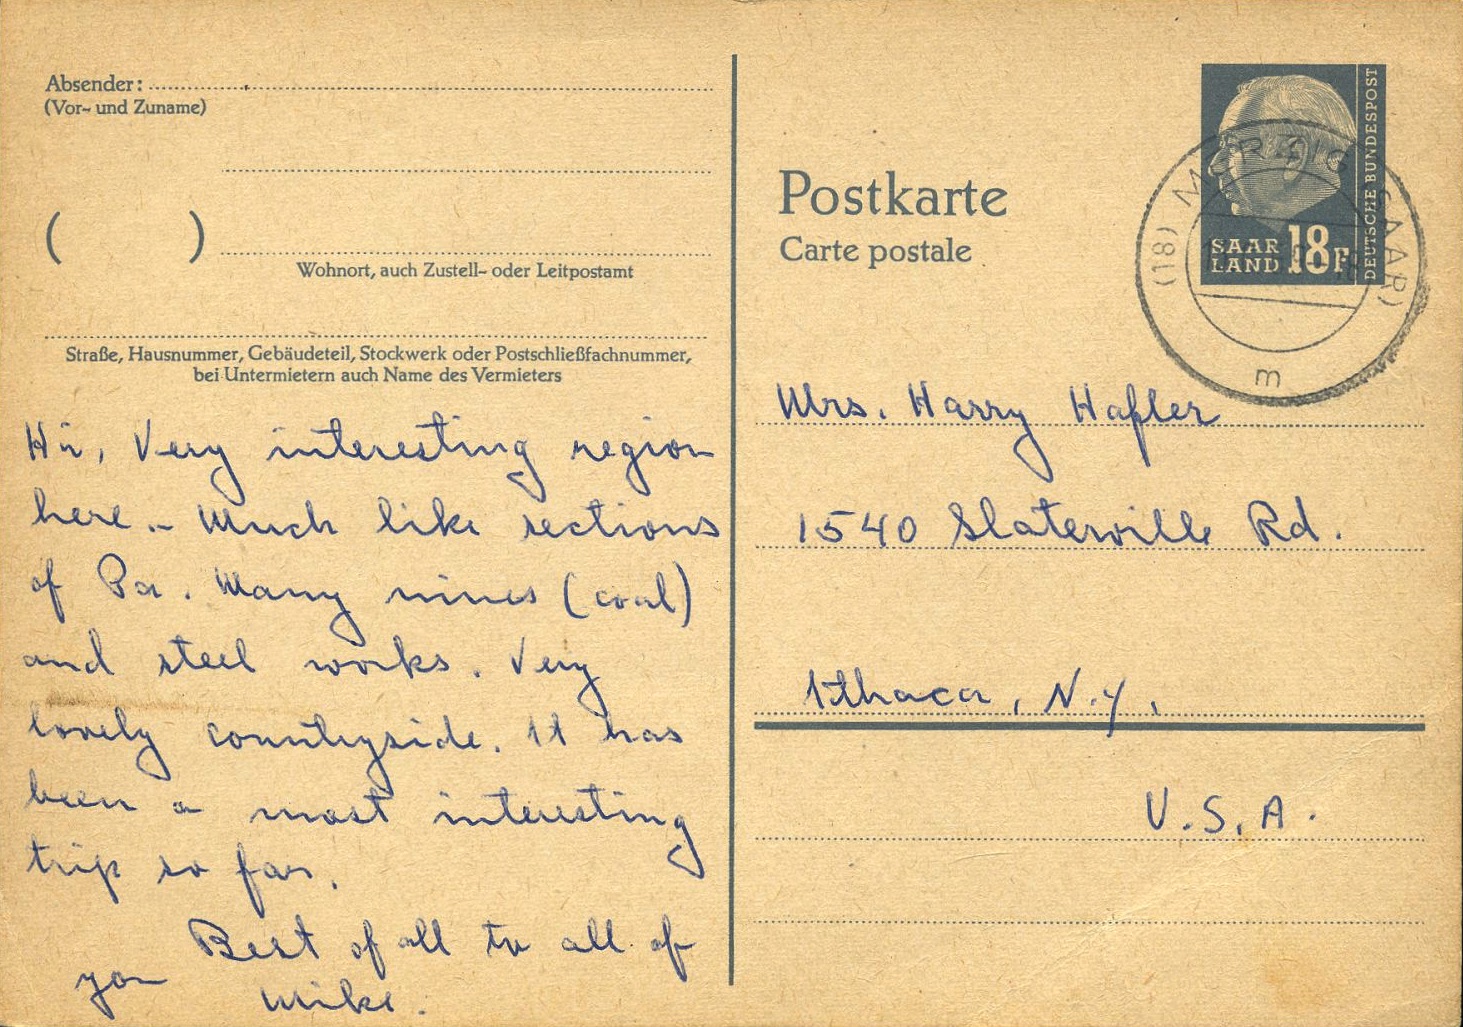 Absender:
(Vor- und Zuname)
(            )
Wohnort, auch Zustell- oder Leitpostamt
Straße, Hausnummer, Gebäudeteil, Stockwerk oder Postschließfachnummer,
bei Untermietern auch Name des Vermieters
Hi, Very interesting region
here. – Much like sections
of Pa. Many mines (coal)
and steel works. Very
lovely countryside. It has
been a most interesting
trip so far.
Best of all to all of
you
Mike.
Postkarte
Carte postale
SAAR
LAND 18 F
DEUTSCHE BUNDESPOST
(18) MERZIG (SAAR)
m
Mrs. Harry Hafler
1540 Slaterville Rd.
Ithaca, N.Y.
U.S.A.